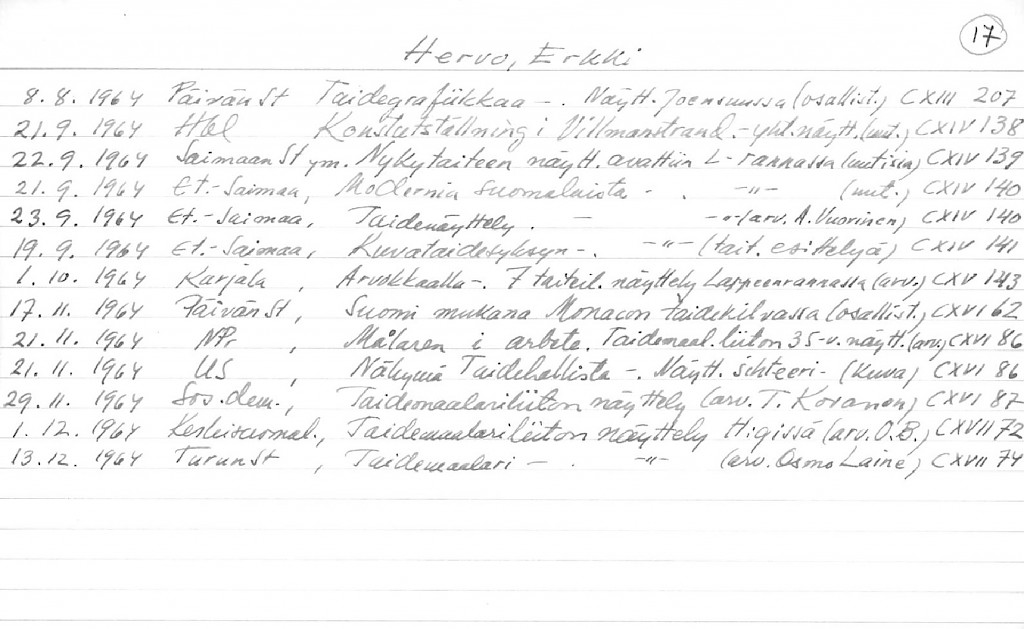 17
Hervo, Erkki
8.8. 1964 PäivänSt Taidegrafiikkaa -. Näytt. Joensuussa (osallist.) CXIII 207
21.9. 1964 Hbl Konstutställning i Villmanstrand. - yht.näytt. (uut.) CXIV 138
22.9. 1964 SaimaanSt ym. Nykytaiteen näytt. avattiin L-rannassa (uutisia) CXIV 139
21.9. 1964 Et.-Saimaa, Modernia suomalaista - . -"- (uut.) CXIV 140
23.9. 1964 Et.-Saimaa, Taidenäyttely. - -"- (arv. A. Vuorinen) CXIV 140
19.9. 1964 Et-Saimaa, Kuvataidesyksyn -. -"- (tait. esittelyä) CXIV 141
1.10. 1964 Karjala, Arvokkaalla -. 7 taiteil. näyttely Lappeenrannassa (arv.) CXV 143
17.11. 1964 PäivänSt, Suomi mukana Monacon taidekilvassa (osallist.) CXVI 62
21.11. 1964 NPr, Målaren i arbete. Taidemaal.liiton 35-v. näytt. (arv.) CXVI 86
21.11. 1964 US, Näkymä Taidehallista -. Näytt. sihteeri - (kuva) CXVI 86
29.11. 1964 Sos.dem., Taidemaalariliiton näyttely (arv. T. Kovanen) CXVI 87
1.12. 1964 Keskisuomal., Taidemaalariliiton näyttely H:gissä (arv. O.B.) CXVII 72
13.12. 1964 TurunSt, Taidemaalari - . -"- (arv. Osmo Laine) CXVII 74